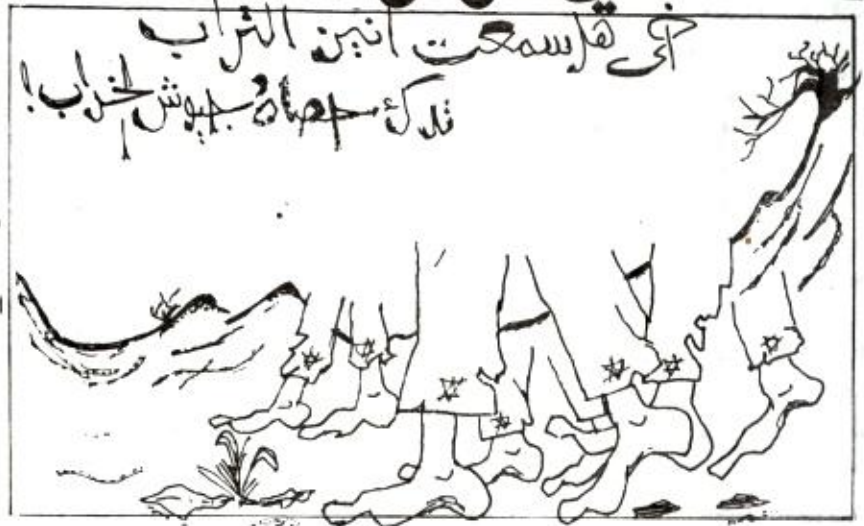 أخى هل سمعت أنين التراب
تدكُّ حصاهُ جيوش الخراب!